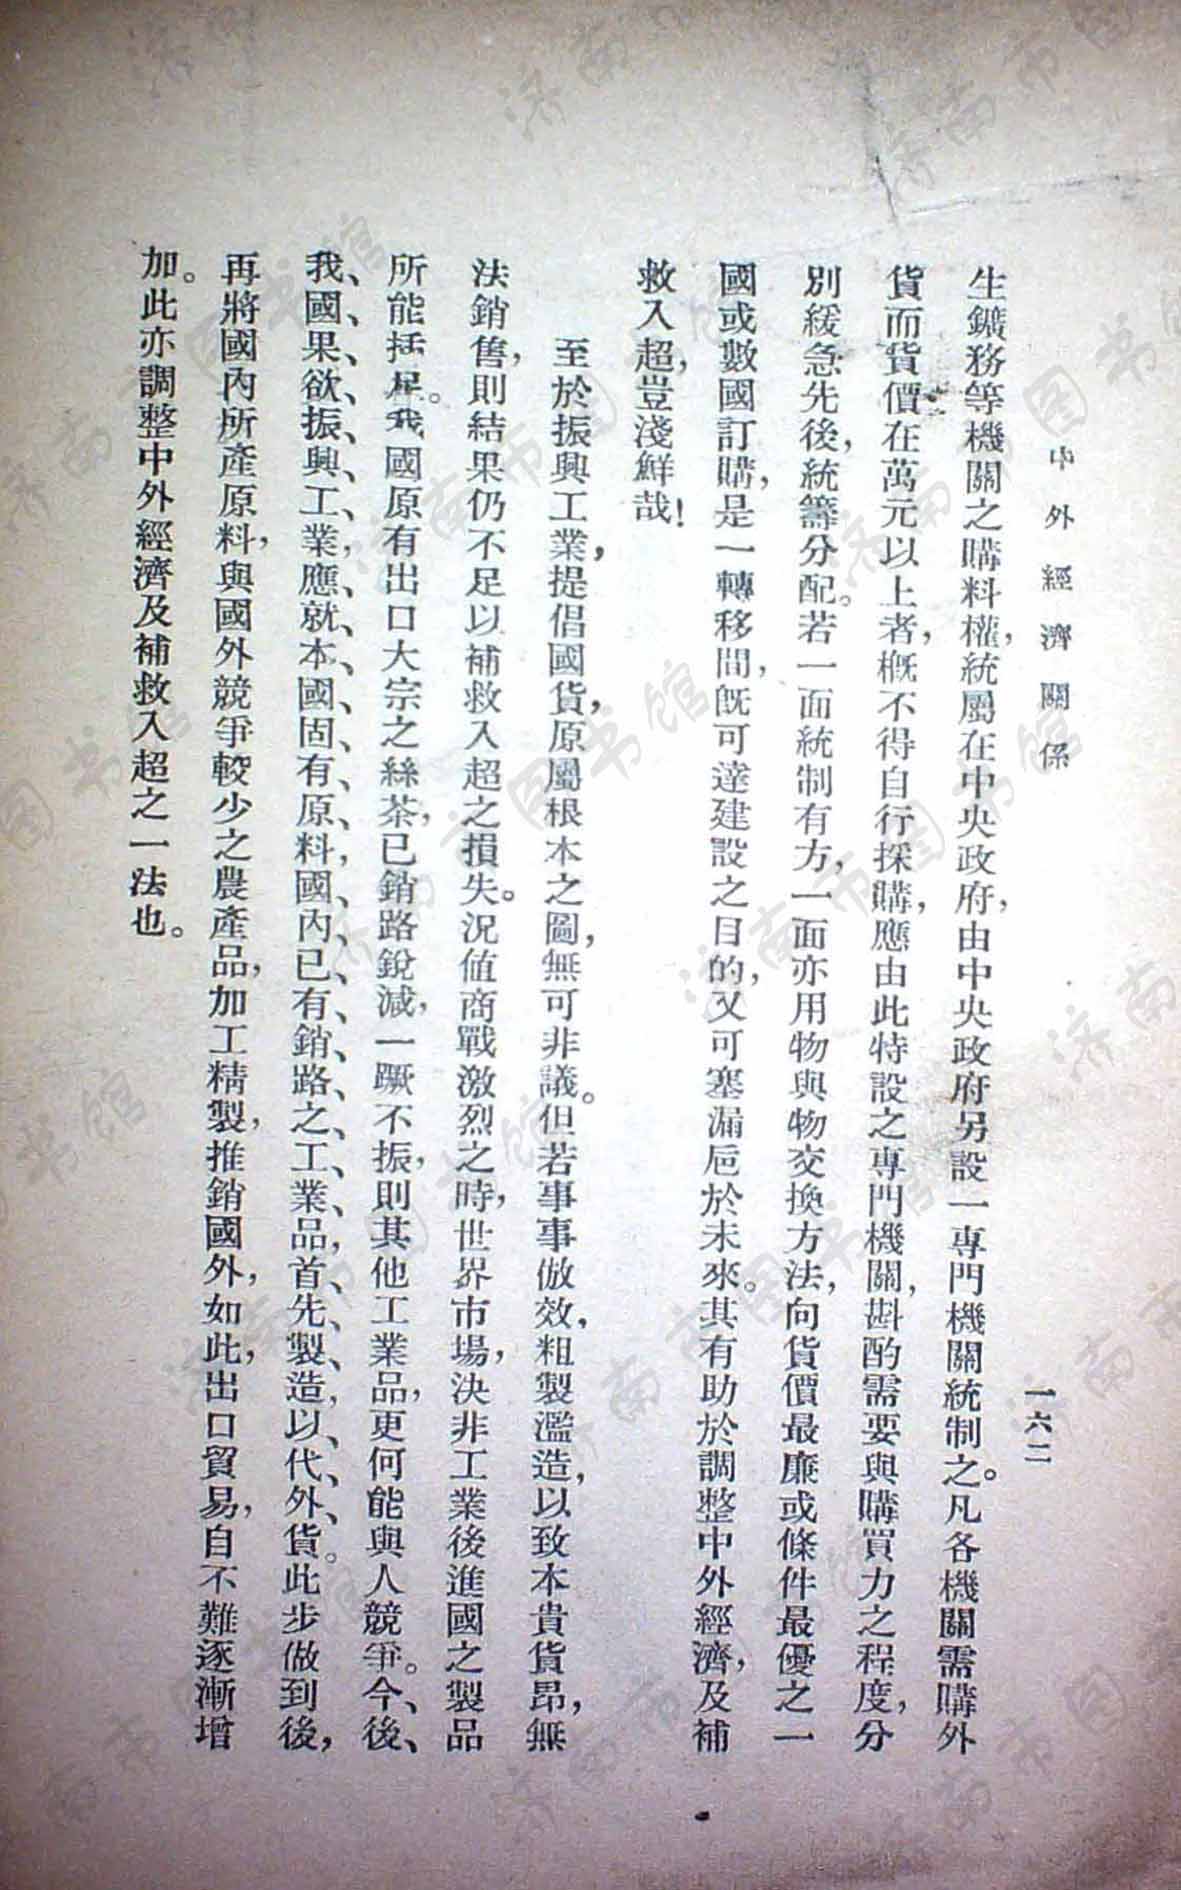 中外經濟關係
一六二
生鑛務等機關之購料權，統屬在中央政府，由中央政府另設一專門機關統制之。凡各機關需購外
貨而貨價在萬元以上者，概不得自行採購，應由此特設之專門機關，斟酌需要與購買力之程度，分
別緩急先後，統籌分配。若一面統制有方，一面亦用物與物交換方法，向貨價最廉或條件最優之一
國或數國訂購，是一轉移間，旣可達建設之目的，又可塞漏巵於未來。其有助於調整中外經濟，及補
救入超，豈淺鮮哉！
至於振興工業，提倡國貨，原屬根本之圖，無可非議。但若事事倣效，粗製濫造，以致本貴貨昂，無
法銷售，則結果仍不足以補救入超之損失。況値商戰激烈之時，世界市場，決非工業後進國之製品
所能。我國原有出口大宗之絲茶，已銷路銳減，一蹶不振，則其他工業品，更何能與人競爭。今後、
我、國、果、欲、振、興、工、業，應、就、本、國、固、有、原、料，國、內、已、有、銷、路、之、工、業、品，首、先、製、造，以、代、外、貨。此步做到後，
再將國內所產原料，與國外競爭較少之農產品，加工精製，推銷國外，如此，出口貿易，自不難逐漸增
加。此亦調整中外經濟及補救入超之一法也。
济南市图书馆